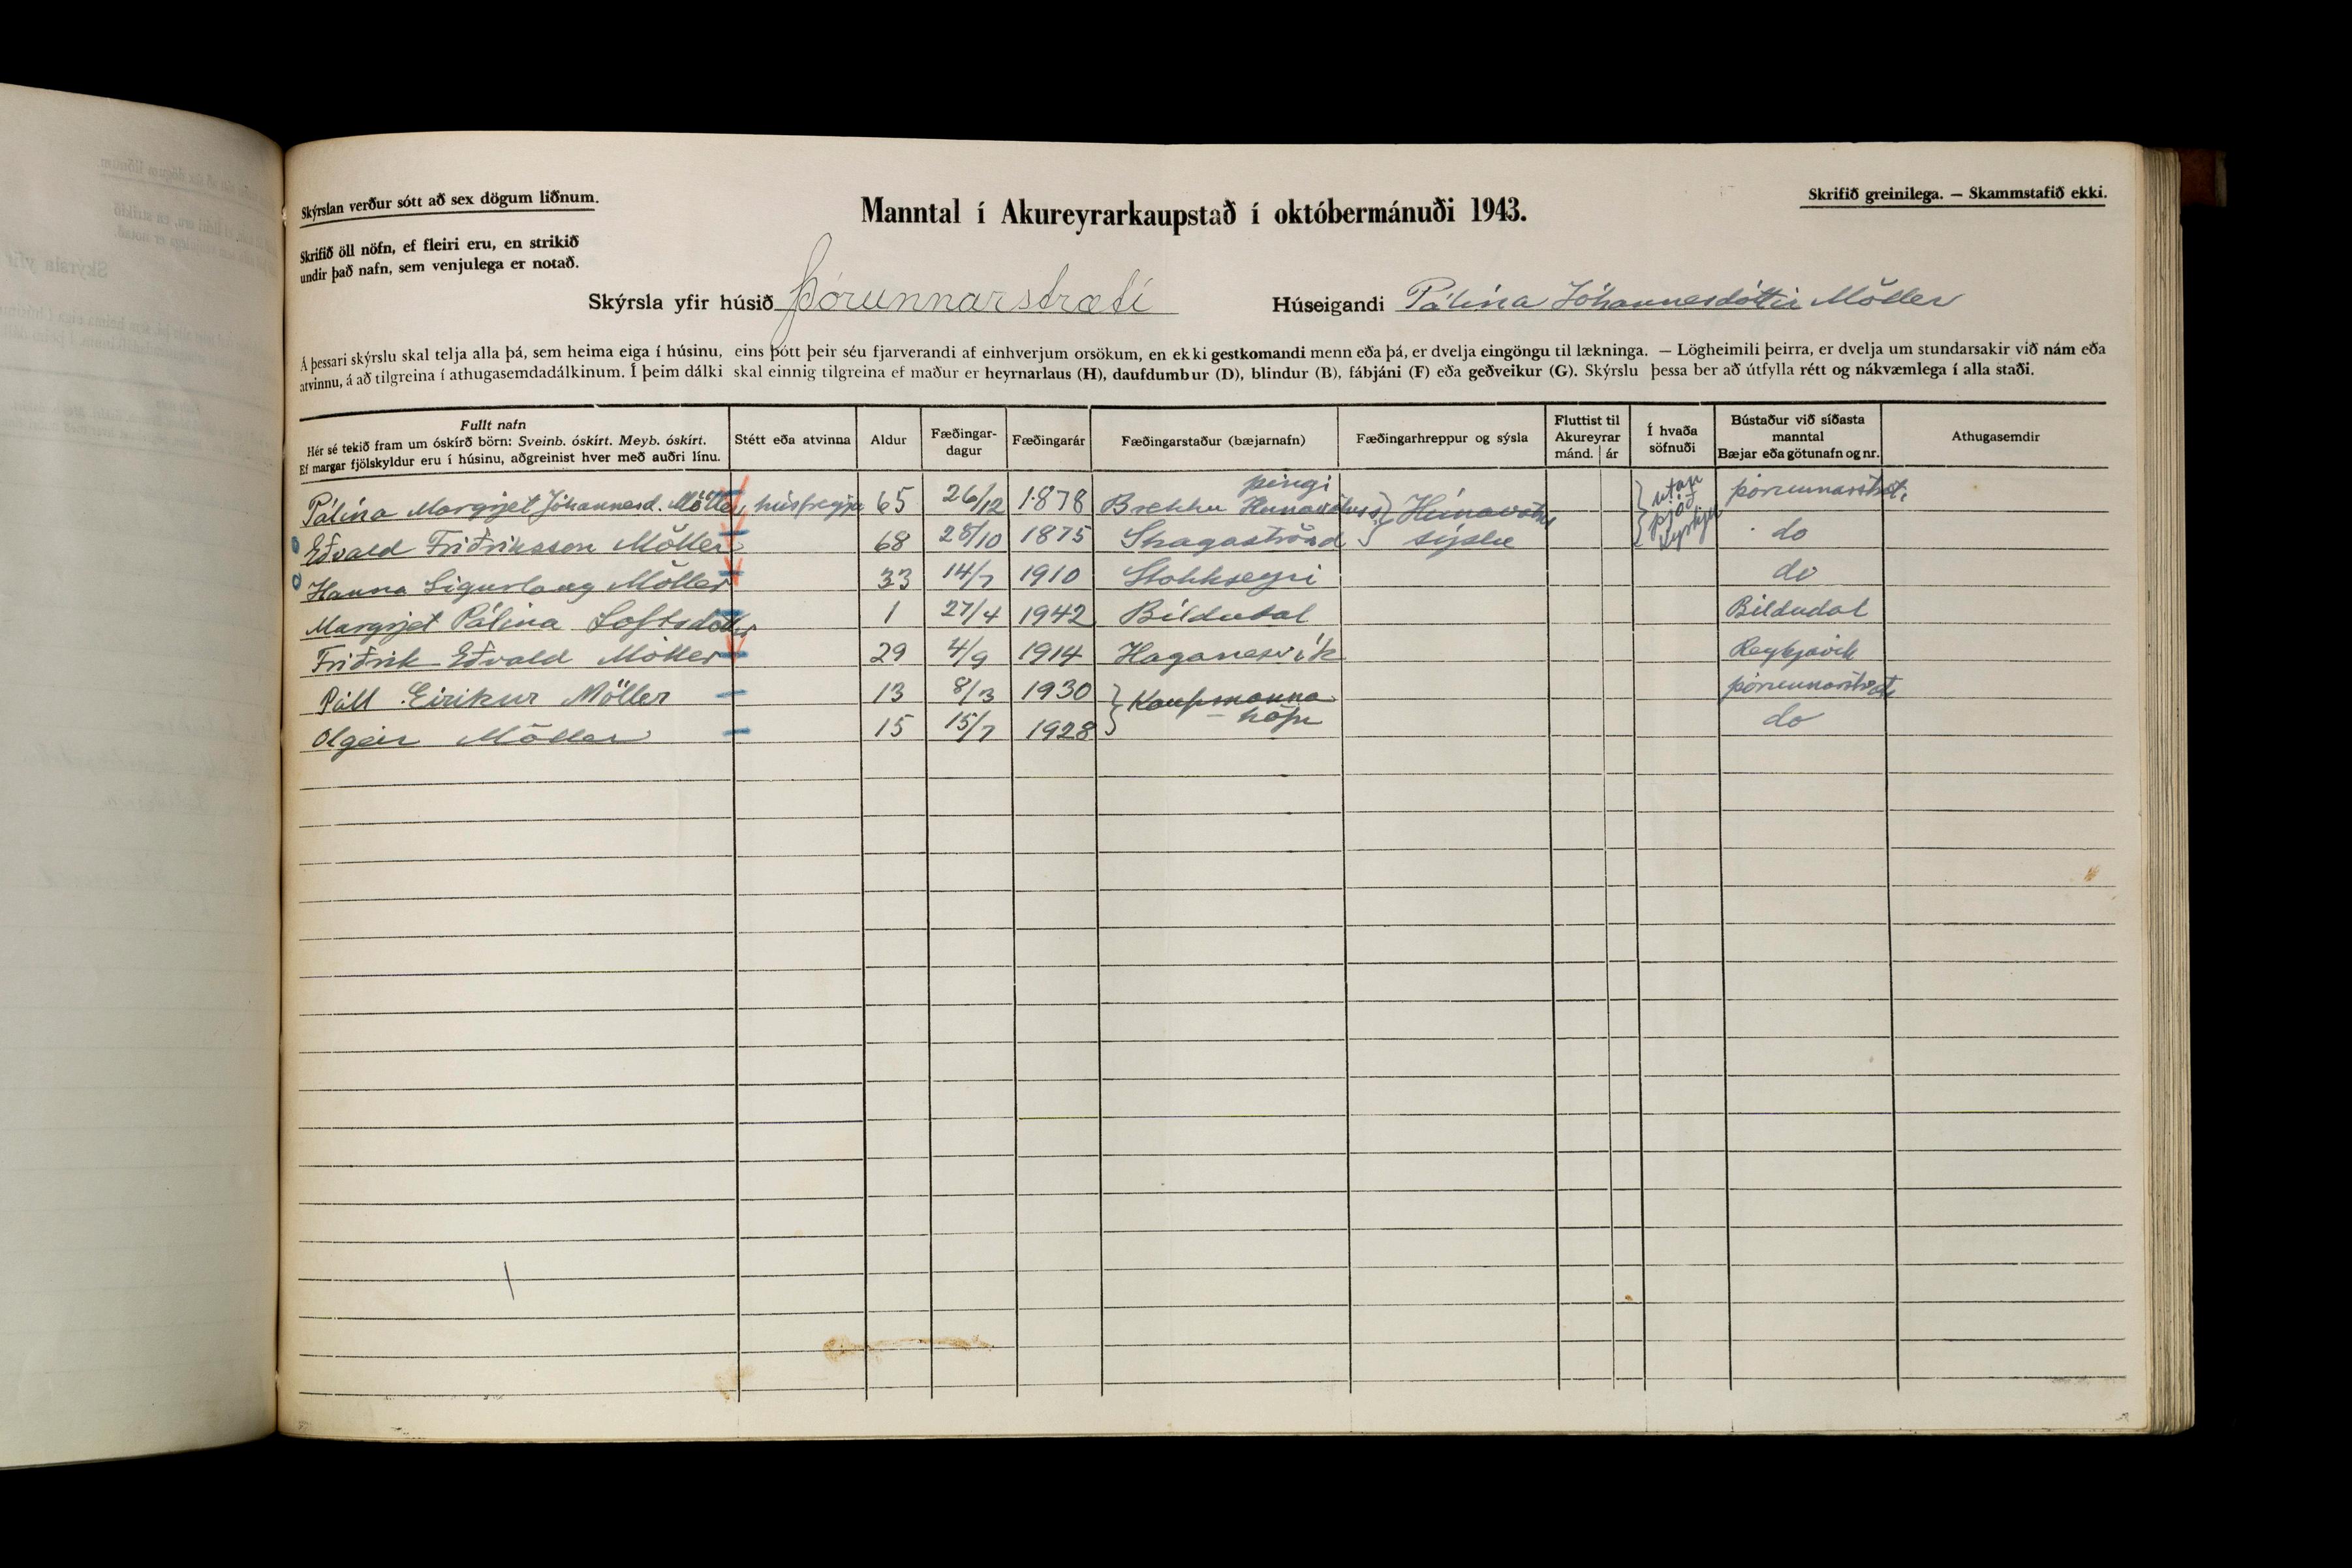 Skýrslan verður sótt að sex dögum liðnum.
Manntal í Akureyrarkaupstað í októbermánuði 1943.
Skrifið greinilega. — Skammstafið ekki.
Skrifið öll nöfn, ef fleiri eru, en strikið
undir það nafn, sem venjulega er notað.
Skýrsla yfir húsið Þórunnarstræti Húseigandi Pálína Jóhannesdóttir Möller
Á þessari skýrslu skal telja alla þá, sem heima eiga í húsinu, eins þótt þeir séu fjarverandi af einhverjum orsökum, en ekki gestkomandi menn eða þá, er dvelja eingöngu til lækninga. — Lögheimili þeirra, er dvelja um stundarsakir við nám eða
atvinnu, á að tilgreina í athugasemdadálkinum. Í þeim dálki skal einnig tilgreina ef maður er heyrnarlaus (H), daufdumbur (D), blindur (B), fábjáni (F) eða geðveikur (G). Skýrslu þessa ber að útfylla rétt og nákvæmlega í alla staði.
Fullt nafn
Hér sé tekið fram um óskírð börn: Sveinb. óskírt. Meyb. óskírt.
Ef margar fjölskyldur eru í húsinu, aðgreinist hver með auðri línu.
Stétt eða atvinna
Aldur
Fæðingar-
dagur
Fæðingarár
Fæðingarstaður (bæjarnafn)
Fæðingarhreppur og sýsla
Fluttist til
Akureyrar
mánd. ár
Í hvaða
söfnuði
Bústaður við síðasta
manntal
Bæjar eða götunafn og nr.
Athugasemdir
þingi
Pálína Margrjet Jóhannesd. Möller, húsfreyja 65 26/12 1878 Brekku Hunavatns Húnavatns utan Þórunnarstræti
Eðvald Friðriksson Möller 68 28/10 1875 Skagaströnd sýslu þjóð kyrkju do
Hanna Sigurlaug Möller 33 14/7 1910 Stokkseyri do
Margrjet Pálína Loftsdóttir 1 27/4 1942 Bíldudal Bíldudal
Friðrik Eðvald Möller 29 4/9 1914 Haganesvík Reykjavík
Páll Eirikur Möller 13 8/3 1930 Kaupmanna Þórunnarstræti
Olgeir Möller 15 15/7 1928 höfn do